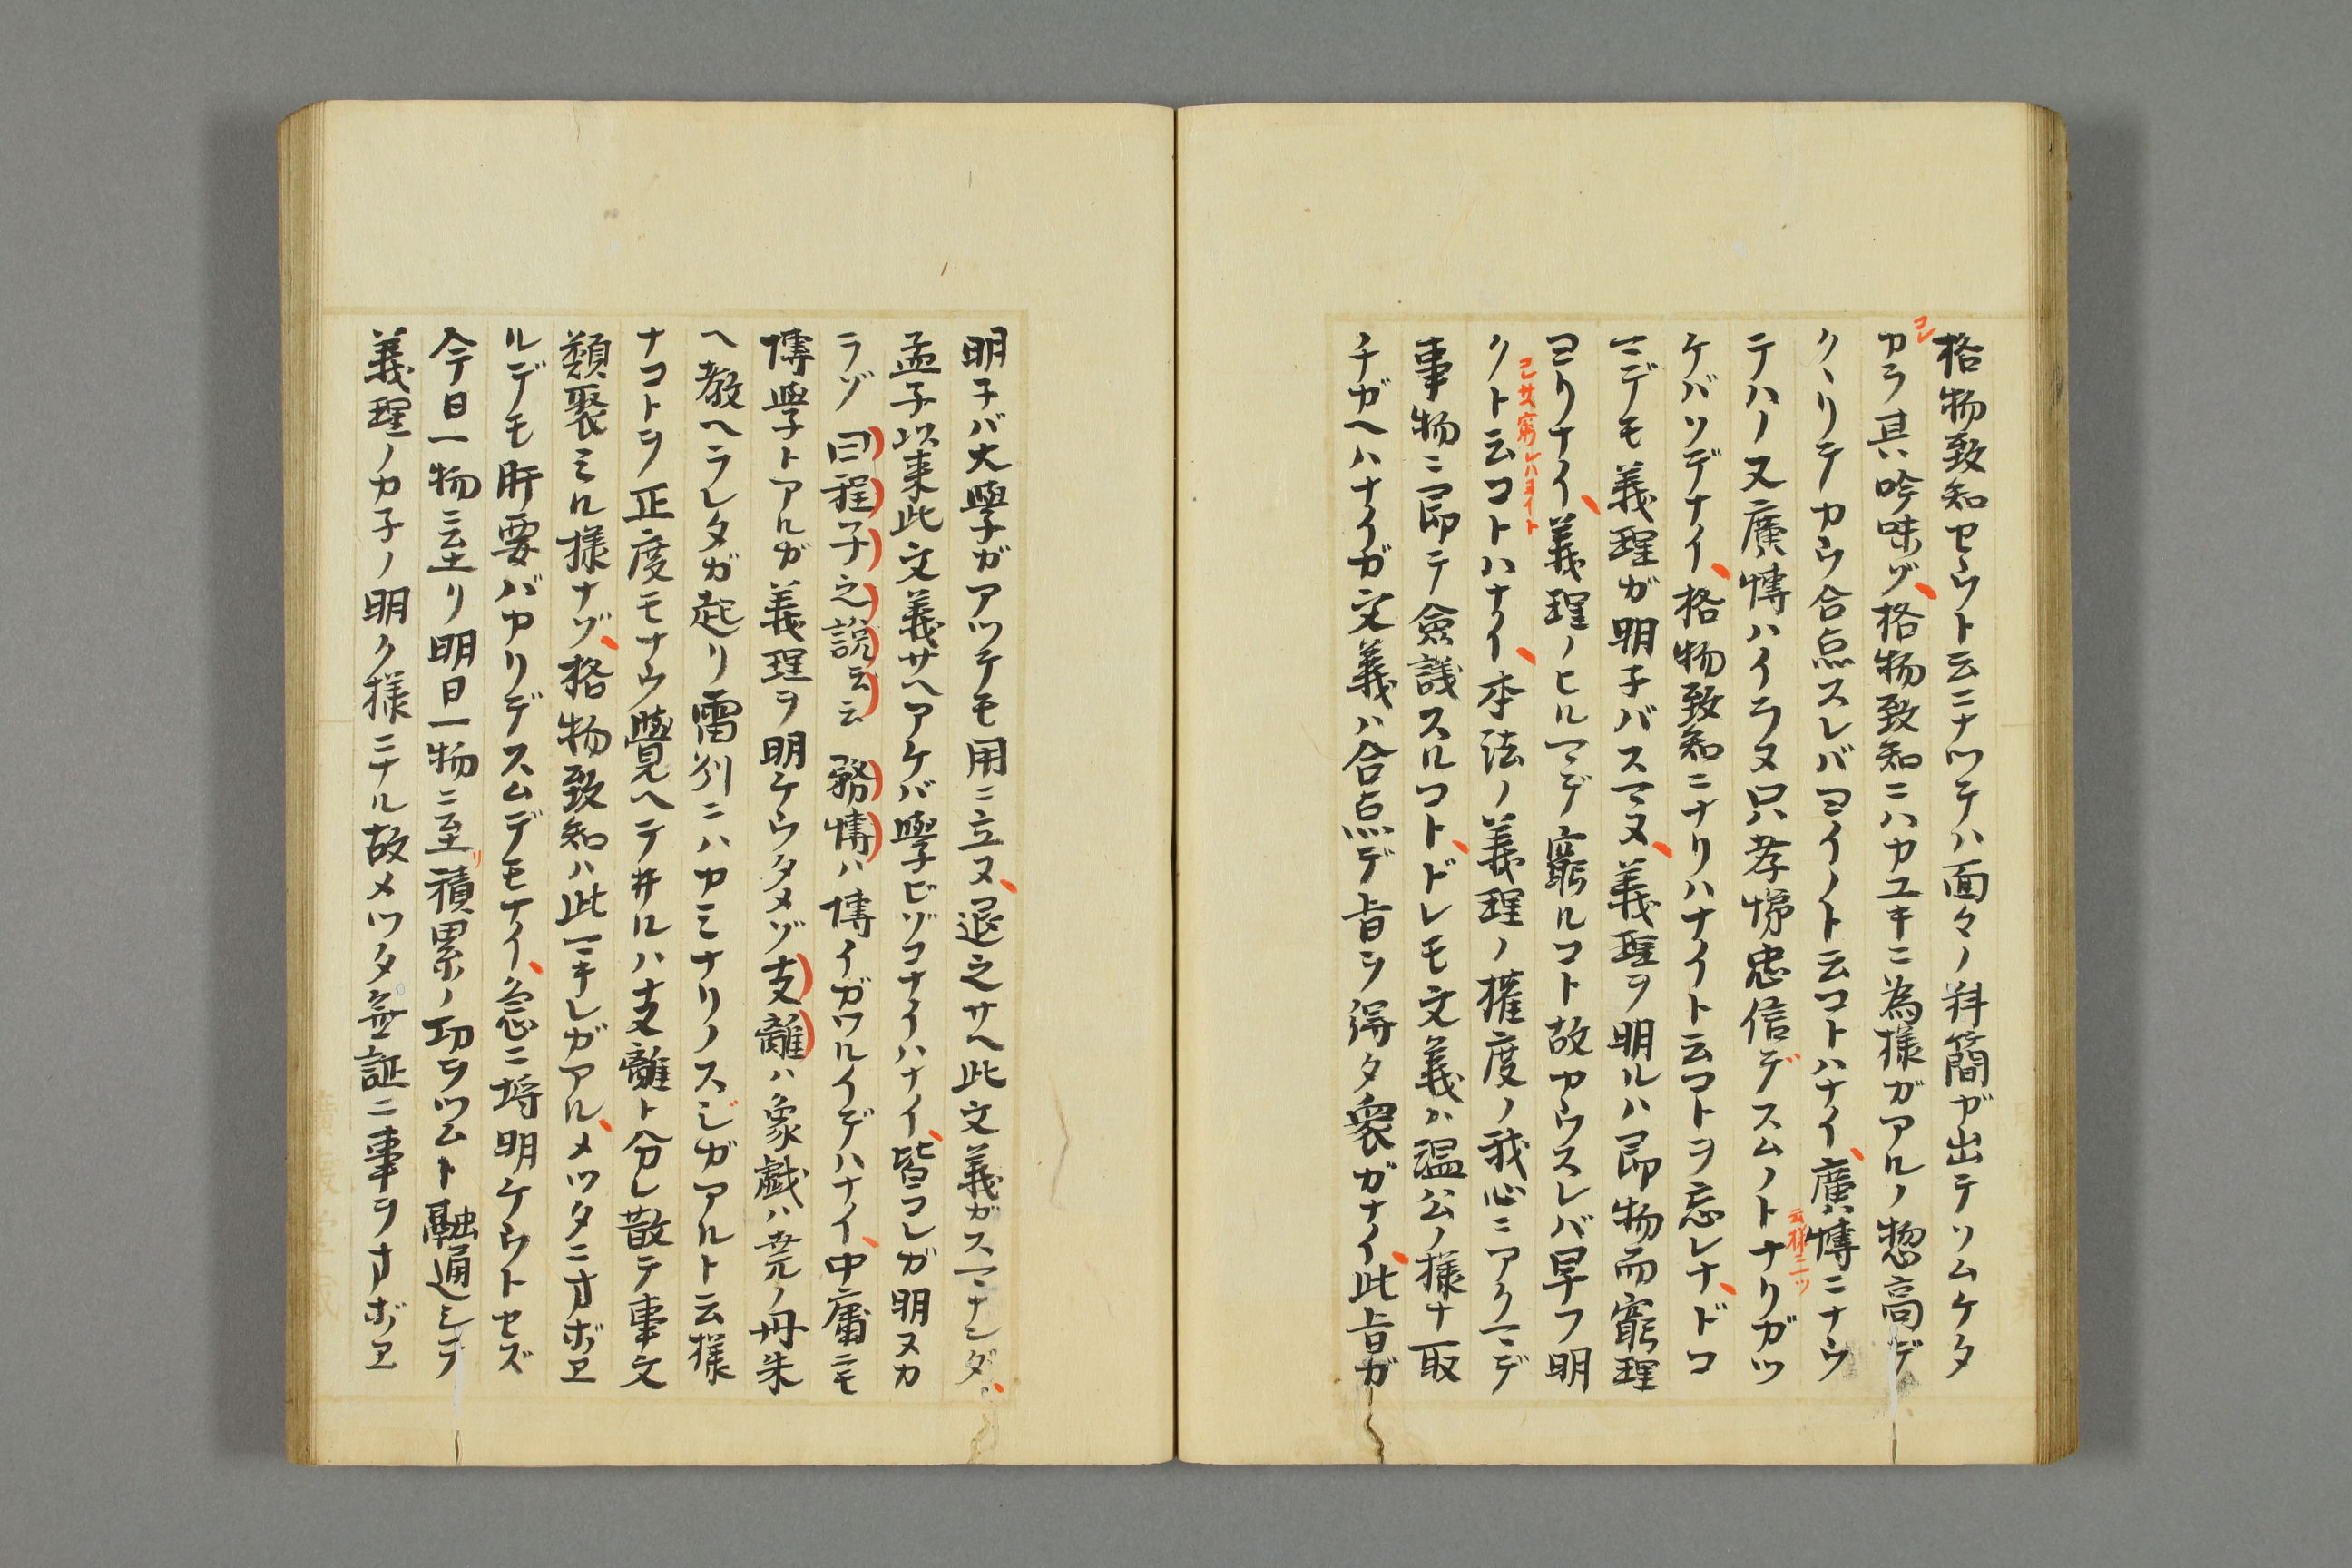 格物致知セウト云ニナツテハ面々ノ料簡ガ出テソムケタ
コレ
カラ其吟味ゾ格物致知ニハカユキニ為様ガアルノ惣高デ
クヽリテカウ合点スレバヨイノト云コトハナイ廣博ニナウ
云様ニツ
テハノ又廣博ハイラヌ只孝悌忠信デスムノトナリガツ
ケバソデナイ格物致知ニナリハナイト云コトヲ忘レナドコ
マデモ義理ガ明子バスマヌ義理ヲ明ルハ即物而窮理
ヨリナイ義理ノヒルマデ窮ルコト故カウスレバ早フ明
コサ窮レハヨイト
クト云コトハナイ本法ノ義理ノ権度ノ我心ニアクマデ
事物ニ即テ僉議スルコトドレモ文義ハ温公ノ様ナ取
チガヘハナイガ文義ハ合点デ旨ヲ得タ衆ガナイ此旨ガ
明子バ大學ガアツテモ用ニ立ヌ退之サヘ此文義ガスマナンダ
孟子以来此文義サヘアケバ學ビゾコナイハナイ皆コレガ明ヌカ
ラゾ 曰程子之説云云 務博ハ博イガワルイデハナイ中庸ニモ
博學トアルガ義理ヲ明ケウタメゾ支離ハ象戯ハ堯ノ丹朱
ヘ教ヘラレタガ起リ雷列ニハカミナリノスジガアルト云様
ナコトヲ正度モナウ覺ヘテ井ルハ支離ト分レ散テ事文
類聚ミル様ナゾ格物致知ハ此マキレガアルメツタニオボヱ
ルデモ肝要バカリデスムデモナイ急ニ埒明ケウトセズ
今日一物ニ至リ明日一物ニ至リ積累ノ功ヲツムト融通シテ
義理ノカ子ノ明ク様ニナル故メツタ無証ニ事ヲオボヱ